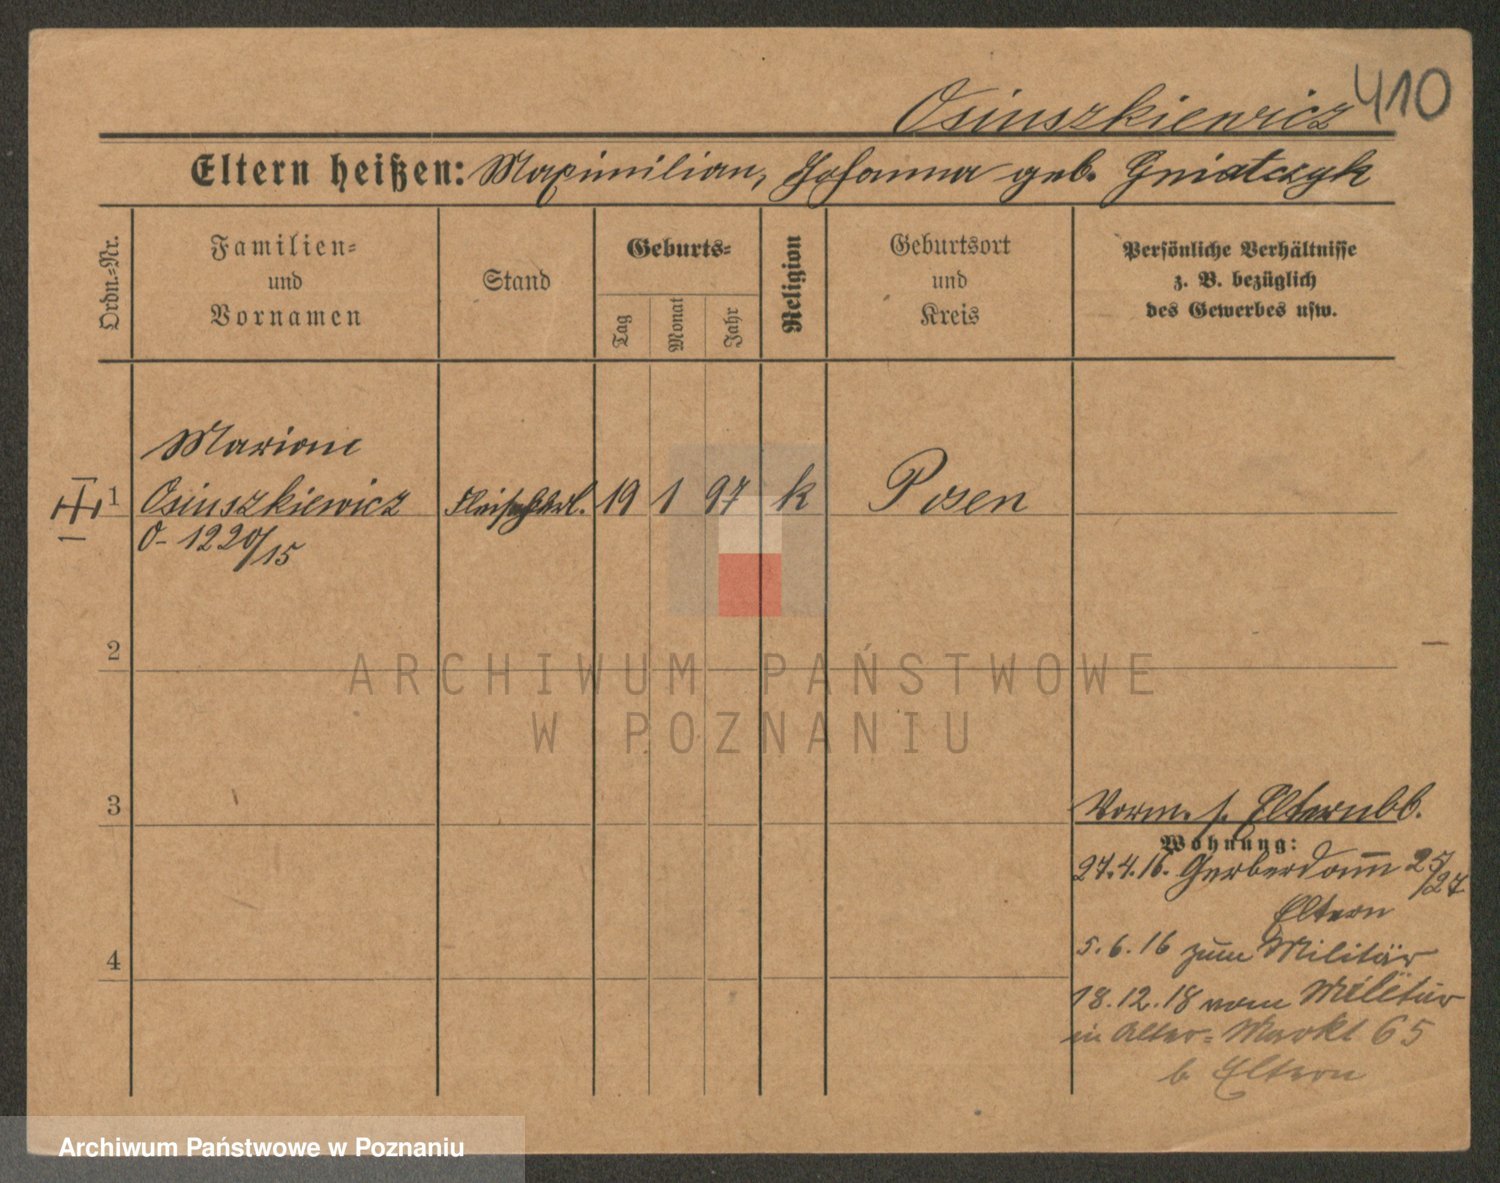 Osiuszkiewicz 410
Eltern heißen: Maximilian, Johanna geb. Gniatczyk
Ordn.-Nr.
Familien-
und
Vornamen
Stand
Geburts-
Tag
Monat
Jahr
Religion
Geburtsort
und
Kreis
Persönliche Verhältnisse
z. B. bezüglich
des Gewerbes usw.
Marian
1 Osiuszkiewicz 19 1 97 k Posen
O- 1220/15
2
ARCHIWUM PAŃSTWOWE
W POZNANIU
3
Vorm. s. Elternbb.
Wohnung:
27.4.16. Gerberdamm 25/27
Eltern
4
5.6.16 zum Militär
18.12.18 vom Militär
in Alter-Markt 65
b Eltern
Archiwum Państwowe w Poznaniu